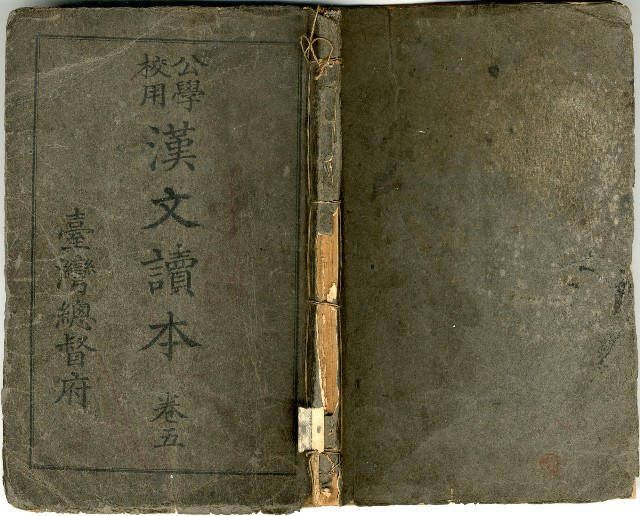 公學
校用
漢文讀本 卷五
臺灣總督府